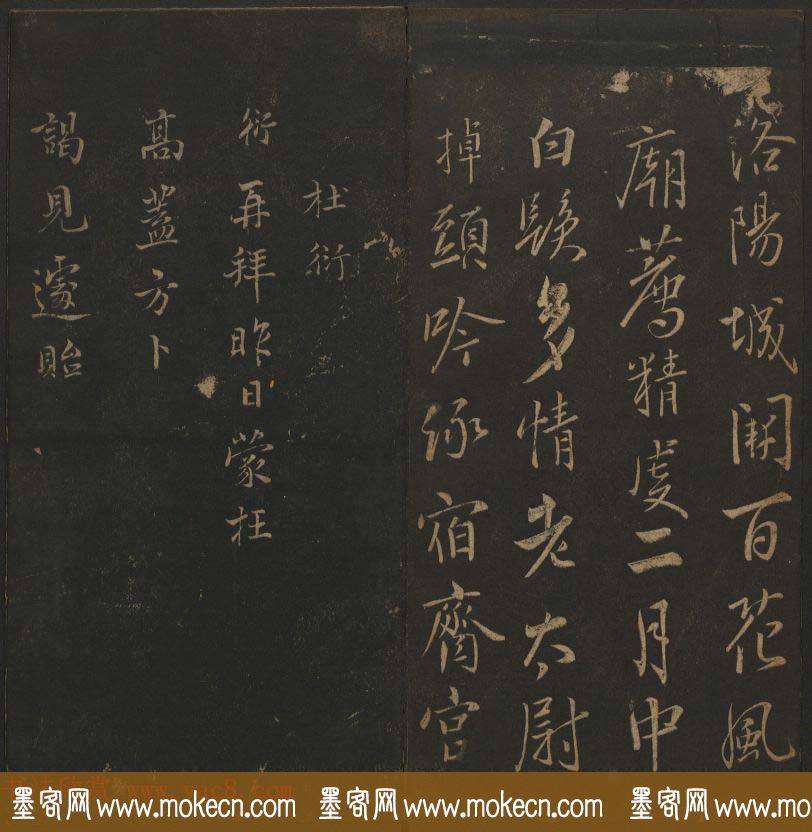 洛陽城開百花風
廟薦精虔二月中
白髮多情老太尉
掉頭吟宿齋宮
杜衍
衍再拜昨日蒙枉
高蓋方卜
謁見遽貽
书法欣赏 www.yac8.com
墨客网 www.mokecn.com 墨客网 www.mokecn.com 墨客网 www.mo